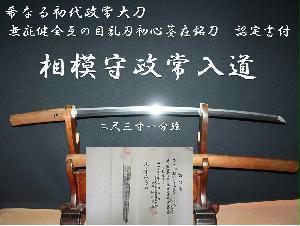 希なる初代政常大刀
無疵健全互の目乱刃初心茎在銘刀 認定書付
相模守政常入道
二尺三寸一分強